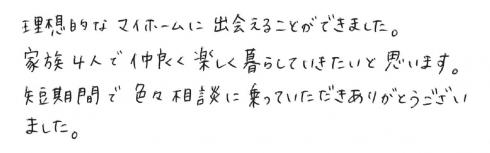 理想的なマイホームに出会えることができました。
家族4人で仲良く楽しく暮らしていきたいと思います。
短期間で色々相談に乗っていただきありがとうござい
ました。